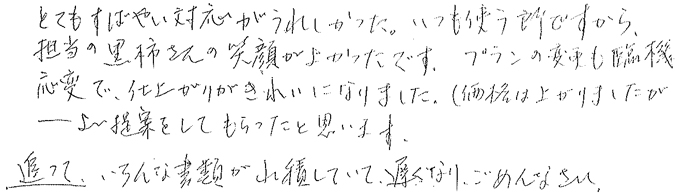 とてもすばやい対応がうれしかった。いつも使う所ですから、
担当の黒柿さんの笑顔がよかったです。プランの変更も臨機
応変で、仕上がりがきれいになりました。(価格は上がりましたが
――よい提案をしてもらったと思います。
追って、いろんな書類が山積していて、遅くなり、ごめんなさい。